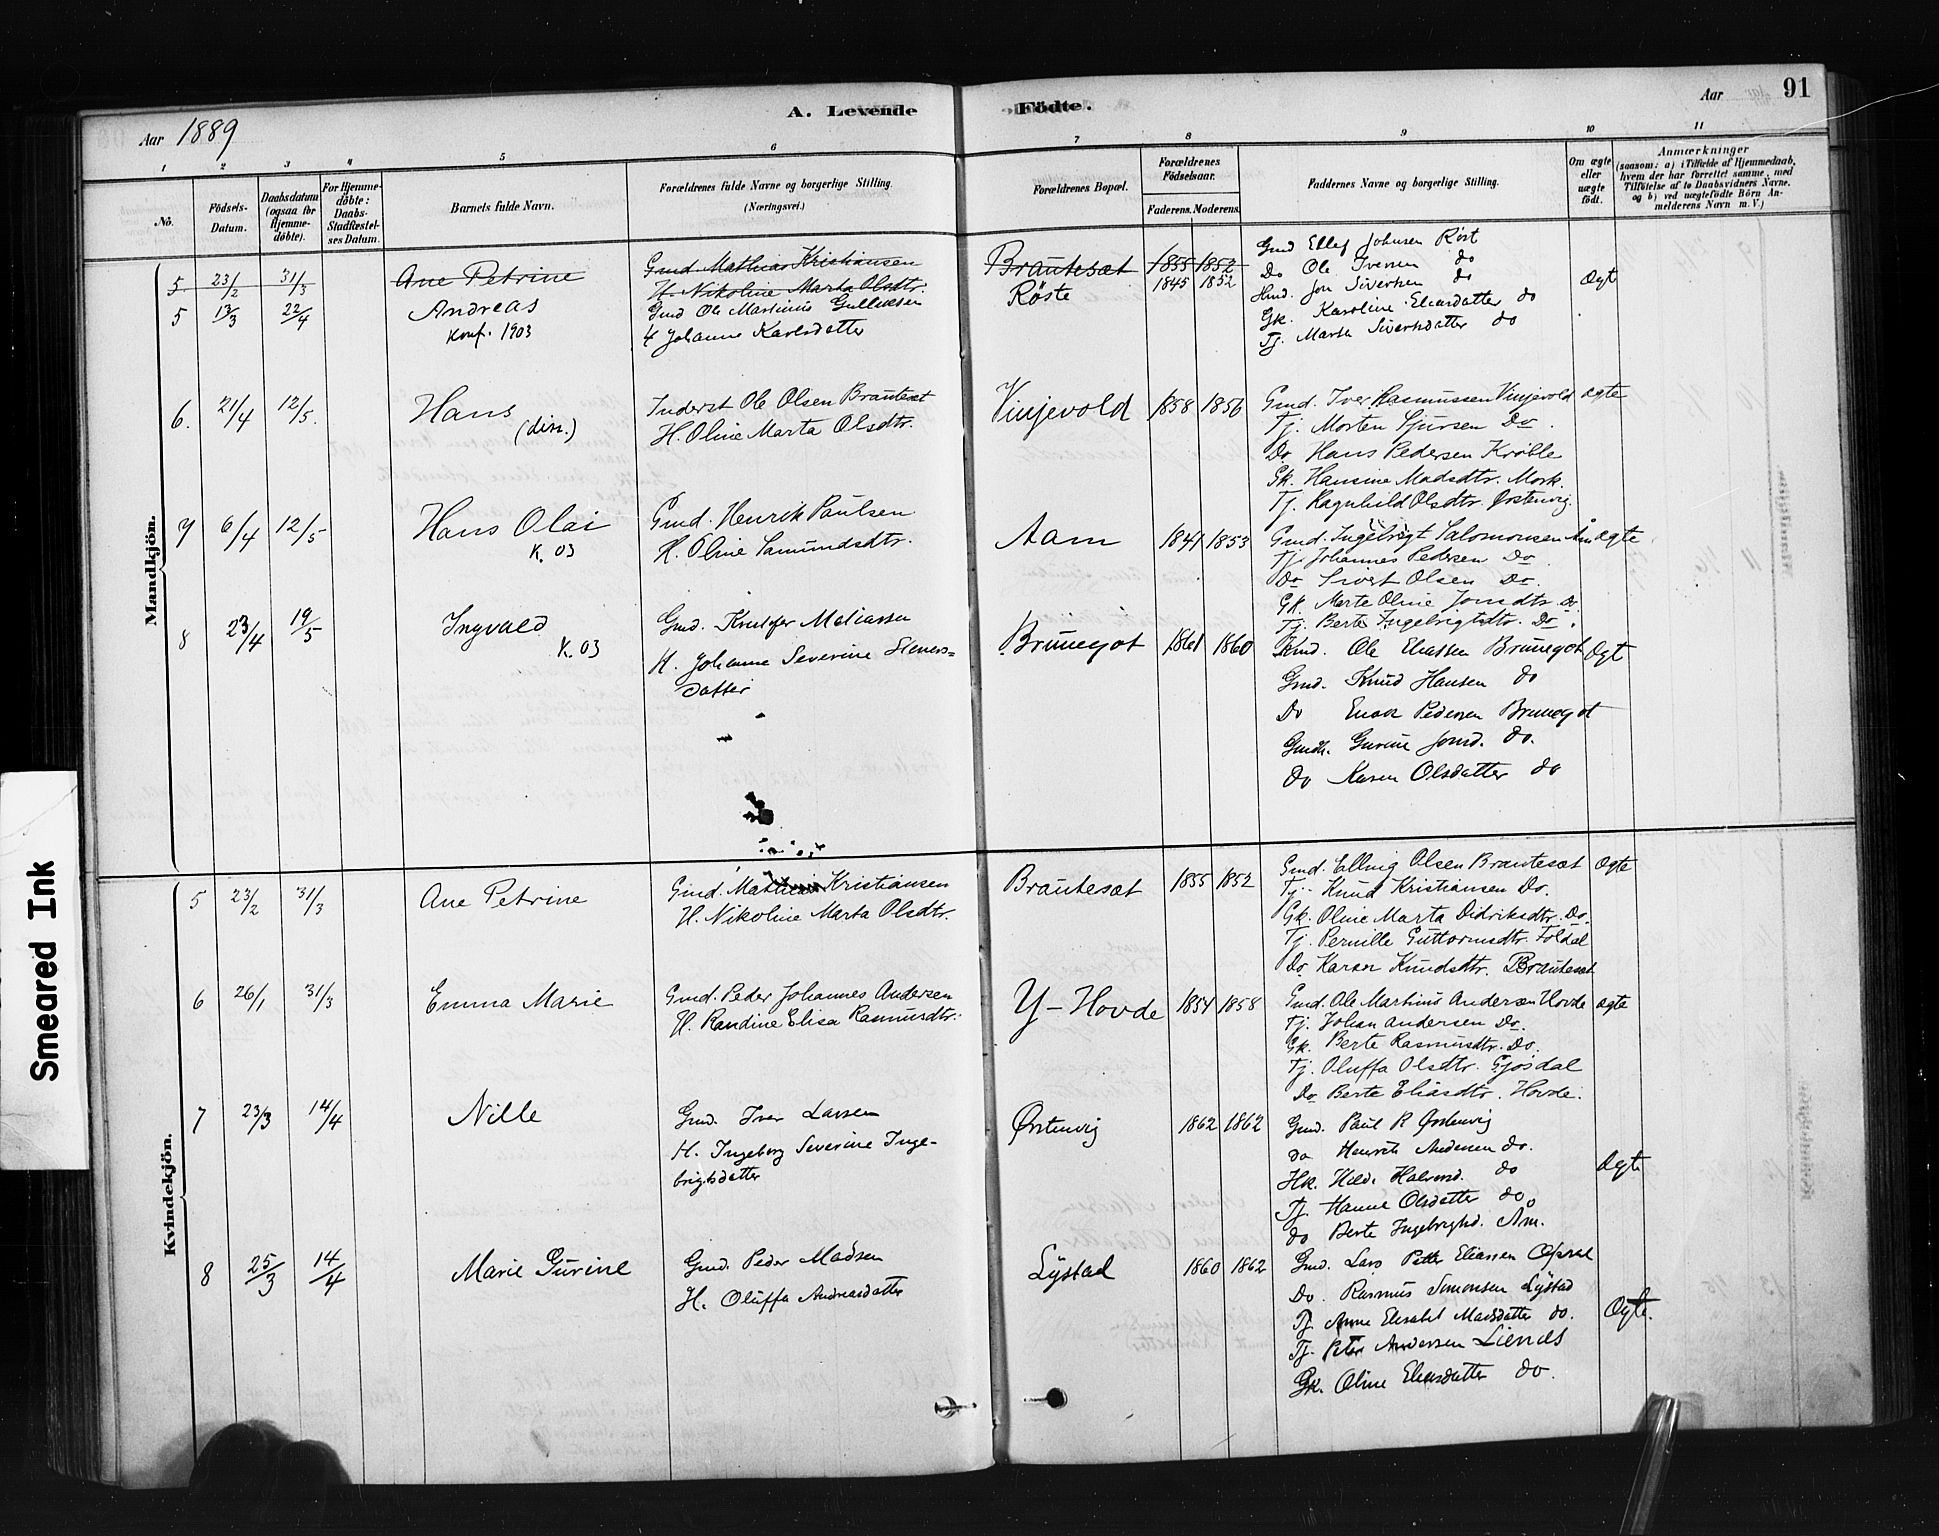 A. Levende Födte.
Aar 1889
Aar
91
1 2 3 4 5 6 7 8 9 10 11
No.
Födsels-Datum.
Daabsdatum (ogsaa for Hjemme-döbte).
For Hjemme-döbte: Daabs-Stadfæstel-ses Datum.
Barnets fulde Navn.
Forældrenes fulde Navne og borgerlige Stilling.
(Næringsvei.)
Forældrenes Bopæl.
Forældrenes Födselsaar.
Faderens. Moderens.
Faddernes Navne og borgerlige Stilling.
Om ægte eller uægte födt.
Anmærkninger
(saasom: a) i Tilfælde af Hjemmedaab, hvem der har forrettet samme, med Tilföielse af to Daabsvidners Navne, og b) ved uægtefödte Börn An-melderens Navn m. V.)
Mandkjön.
5. 23/2 31/3 Ane Petrine Gmd. Mathias Kristiansen
H. Nikoline Marta Olsdtr. Brautesæt 1855 1852
5 13/3 22/4 Andreas
Konf. 1903
Gmd Ole Martinus Gulleksen
H Johanne Karlsdatter
Røste 1845 1852
Gmd Ellef Johnsen Røst
Do Ole Iversen do
Hmd. Jon Sivertsen do
Gk. Karoline Eliasdatter do
Tj. Marta Sivertsdatter do
Ogt
6. 21/4 12/5. Hans
(diss.)
Inderst Ole Olsen Brautesæt
H. Oline Marta Olsdtr.
Vinjevold 1858 1856
Gmd. Iver Rasmussen Vinjevold ægte
Tj. Morten Sjursen Do.
Do Hans Pedersen Krøble
Gk. Hansine Madsdtr. Mork.
Tj. Ragnhild Olsdtr. Ørstenvig.
7 6/4 12/5 Hans Olai
K. 03
Gmd. Henrik Paulsen
H. Oline Samundsdtr.
Aam 1841 1853
Gmd. Ingebrigt Salomonsen Åm ægte
Tj. Johannes Pedersen Do
Do Sivert Olsen Do.
Gk. Marte Oline Jonsdtr. Do
Tj. Berte Ingebrigtsdtr. Do.
8 23/4 19/5 Ingvald
K. 03
Gmd. Kristofer Meliassen
H. Johanne Severine Steners=
datter
Brunegot 1861 1860
Kmd. Ole Eliassen Brunegot Ogt
Gmd. Knud Hansen do
Do Enok Pedersen Brunegot
Gmdk. Gurine Jonsd. do.
Do Karen Olsdatter do
Kvindekjön.
5 23/2 31/3 Ane Petrine
Gmd. Mathias Kristiansen
H. Nikoline Marta Olsdtr.
Brautesæt 1855 1852
Gmd. Elling Olsen Brautesæt ægte
Tj. Knud Kristiansen Do.
Gk. Oline Marta Didriksdtr. Do.
Tj. Pernille Guttormsdtr. Foldal
Do Karen Knudsdtr. Brautesæt
6 26/1 31/3 Emma Marie
Gmd. Peder Johannes Andersen
H. Randine Elisa Rasmusdtr.
Y-Hovde 1854 1858
Gmd. Ole Martinus Andersen Hovde ægte
Tj. Johan Andersen Do.
Gk. Berte Rasmusdtr. Do.
Tj. Oluffa Olsdtr. Gjøsdal
Do Berte Eliasdtr. Hovde.
7 23/3 14/4 Nille
Gmd. Iver Larsen
H. Ingeborg Severine Inge-
brigtsdatter
Ørstenvig 1862 1862
Gmd. Paul R Ørstenvig
do Henrik Andersen do.
Hk. Hilde Halvorsd. do
Tj. Hanne Olsdatter do
do Berte Ingebrigtsd. Åm.
Ogte
8 25/3 14/4 Marie Gurine
Gmd. Peder Madsen
H. Oluffa Andreasdatter
Lystad 1860 1862
Gmd. Lars Petter Eliassen Opsal
Do. Rasmus Simonsen Lystad
Tj. Anne Elisabet Madsdatter do.
Tj. Peter Andersen Lienes
Gk. Oline Eliasdatter do.
Ogte.
Smeared Ink